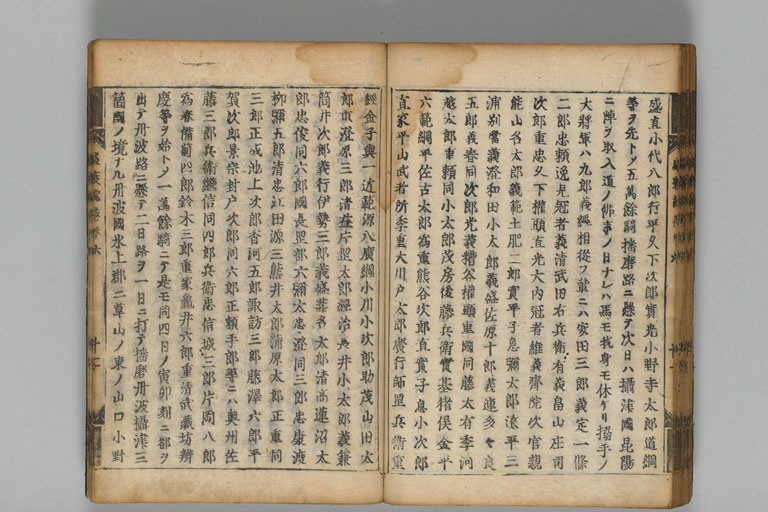 盛直小代八郎行平久下次郎實光小野寺太郎道綱
等ヲ先トメ五萬餘騎播磨路ニ懸テ次日ハ攝津國昆陽
ニ陣ヲ取入道ノ佛事ノ日ナレハ馬モ我身モ休ケリ搦手ノ
大將軍ハ九郎義經相從フ輩ニハ安田三郎義定一條
二郎忠頼逸見冠者義清武田右兵衛有義畠山庄司
次郎重忠久下權頭直光大内冠者維義齋院次官親
能山名太郎義範土肥二郎實平子息彌太郎遠平三
浦別當義澄和田小太郎義盛佐原十郎義連多々良
五郎義春同次郎光義糟谷權頭重國同藤太有季河
越太郎重頼同小太郎茂房後藤兵衛實基猪俣金平
六範綱平佐古太郎為重熊谷次郎直實子息小次郎
直家平山武者所季重大川戸太郎廣行師罡兵衛重
經金子與一近範源八廣綱小川小次郎助茂山田太
郎重澄原三郎清益片罡太郎經治長井小太郎義兼
筒井次郎義行伊勢三郎義盛葦名太郎清高蓮沼太
郎忠俊同六郎國長罡部六彌太忠澄同三郎忠康渡
柳彌五郎清忠江田源三熊井太郎蒲原太郎正重同
三郎正成池上次郎香河五郎諏訪三郎藤澤六郎平
賀次郎景宗封戸次郎同六郎正頼手郎等ニハ奥州佐
藤三郎兵衛繼信同四郎兵衛忠信城三郎片岡八郎
為春備前四郎鈴木三郎重家龜井六郎重清武藏坊辨
慶等ヲ始トメ一萬餘騎ニテ是モ同四日ノ寅卯剋ニ都ヲ
出テ丹波路ニ懸テ二日路ヲ一日ニ打テ播磨丹波攝津三
箇國ノ境ナル丹波國氷上郡三草山ノ東ノ山口小野